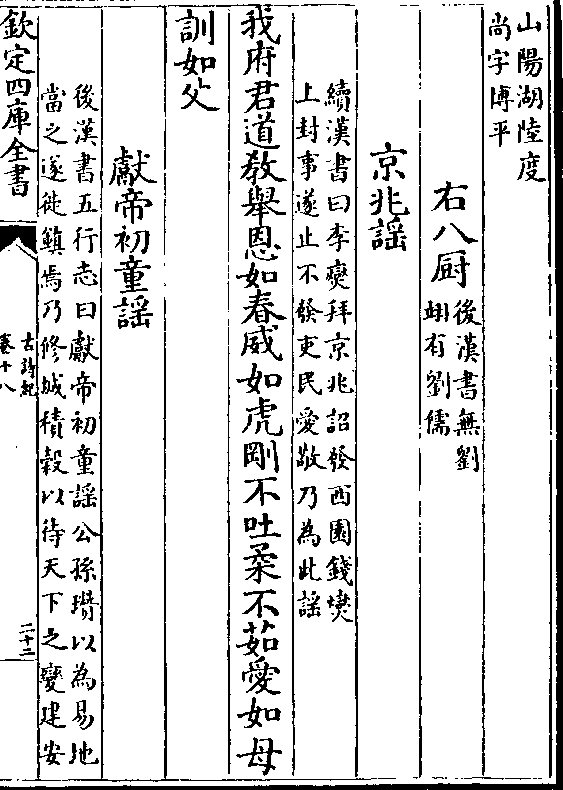 山陽湖陸度
尚字博平
右八厨
後漢書無劉
翊有劉儒
京兆謡
續漢書曰李爕拜京兆詔發西園錢爕
上封事遂止不發吏民愛敬乃為此謡
我府君道教舉恩如春威如虎剛不吐柔不茹愛如母
訓如父
獻帝初童謡
後漢書五行志曰獻帝初童謡公孫瓚以為易地
當之遂徙鎮焉乃修城積穀以待天下之變建安
欽定四庫全書
古詩紀
卷十八
二十二